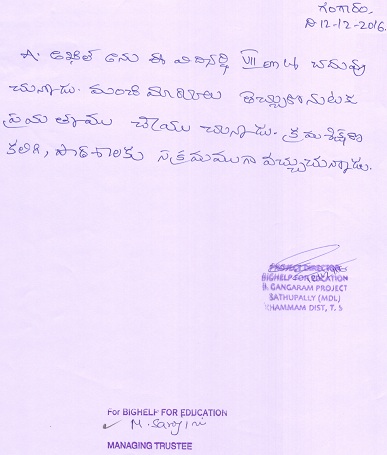 గంగారం.
ది 12-12-2016.
A. అఖిల్ అను ఈ విద్యార్థి VII క్లాసు చదువు
చున్నాడు. మంచి మార్కులు తెచ్చుకొనుటకు
ప్రయత్నము చేయు చున్నాడు. క్రమశిక్షణ
కలిగి, పాఠశాలకు సక్రమముగా వచ్చుచున్నాడు.
PROJECT DIRECTOR
BIGHELP FOR EDUCATION
GANGARAM PROJECT
SATHUPALLY (MDL)
KHAMMAM DIST, T. S
For BIGHELP FOR EDUCATION
M. Sarojini
MANAGING TRUSTEE